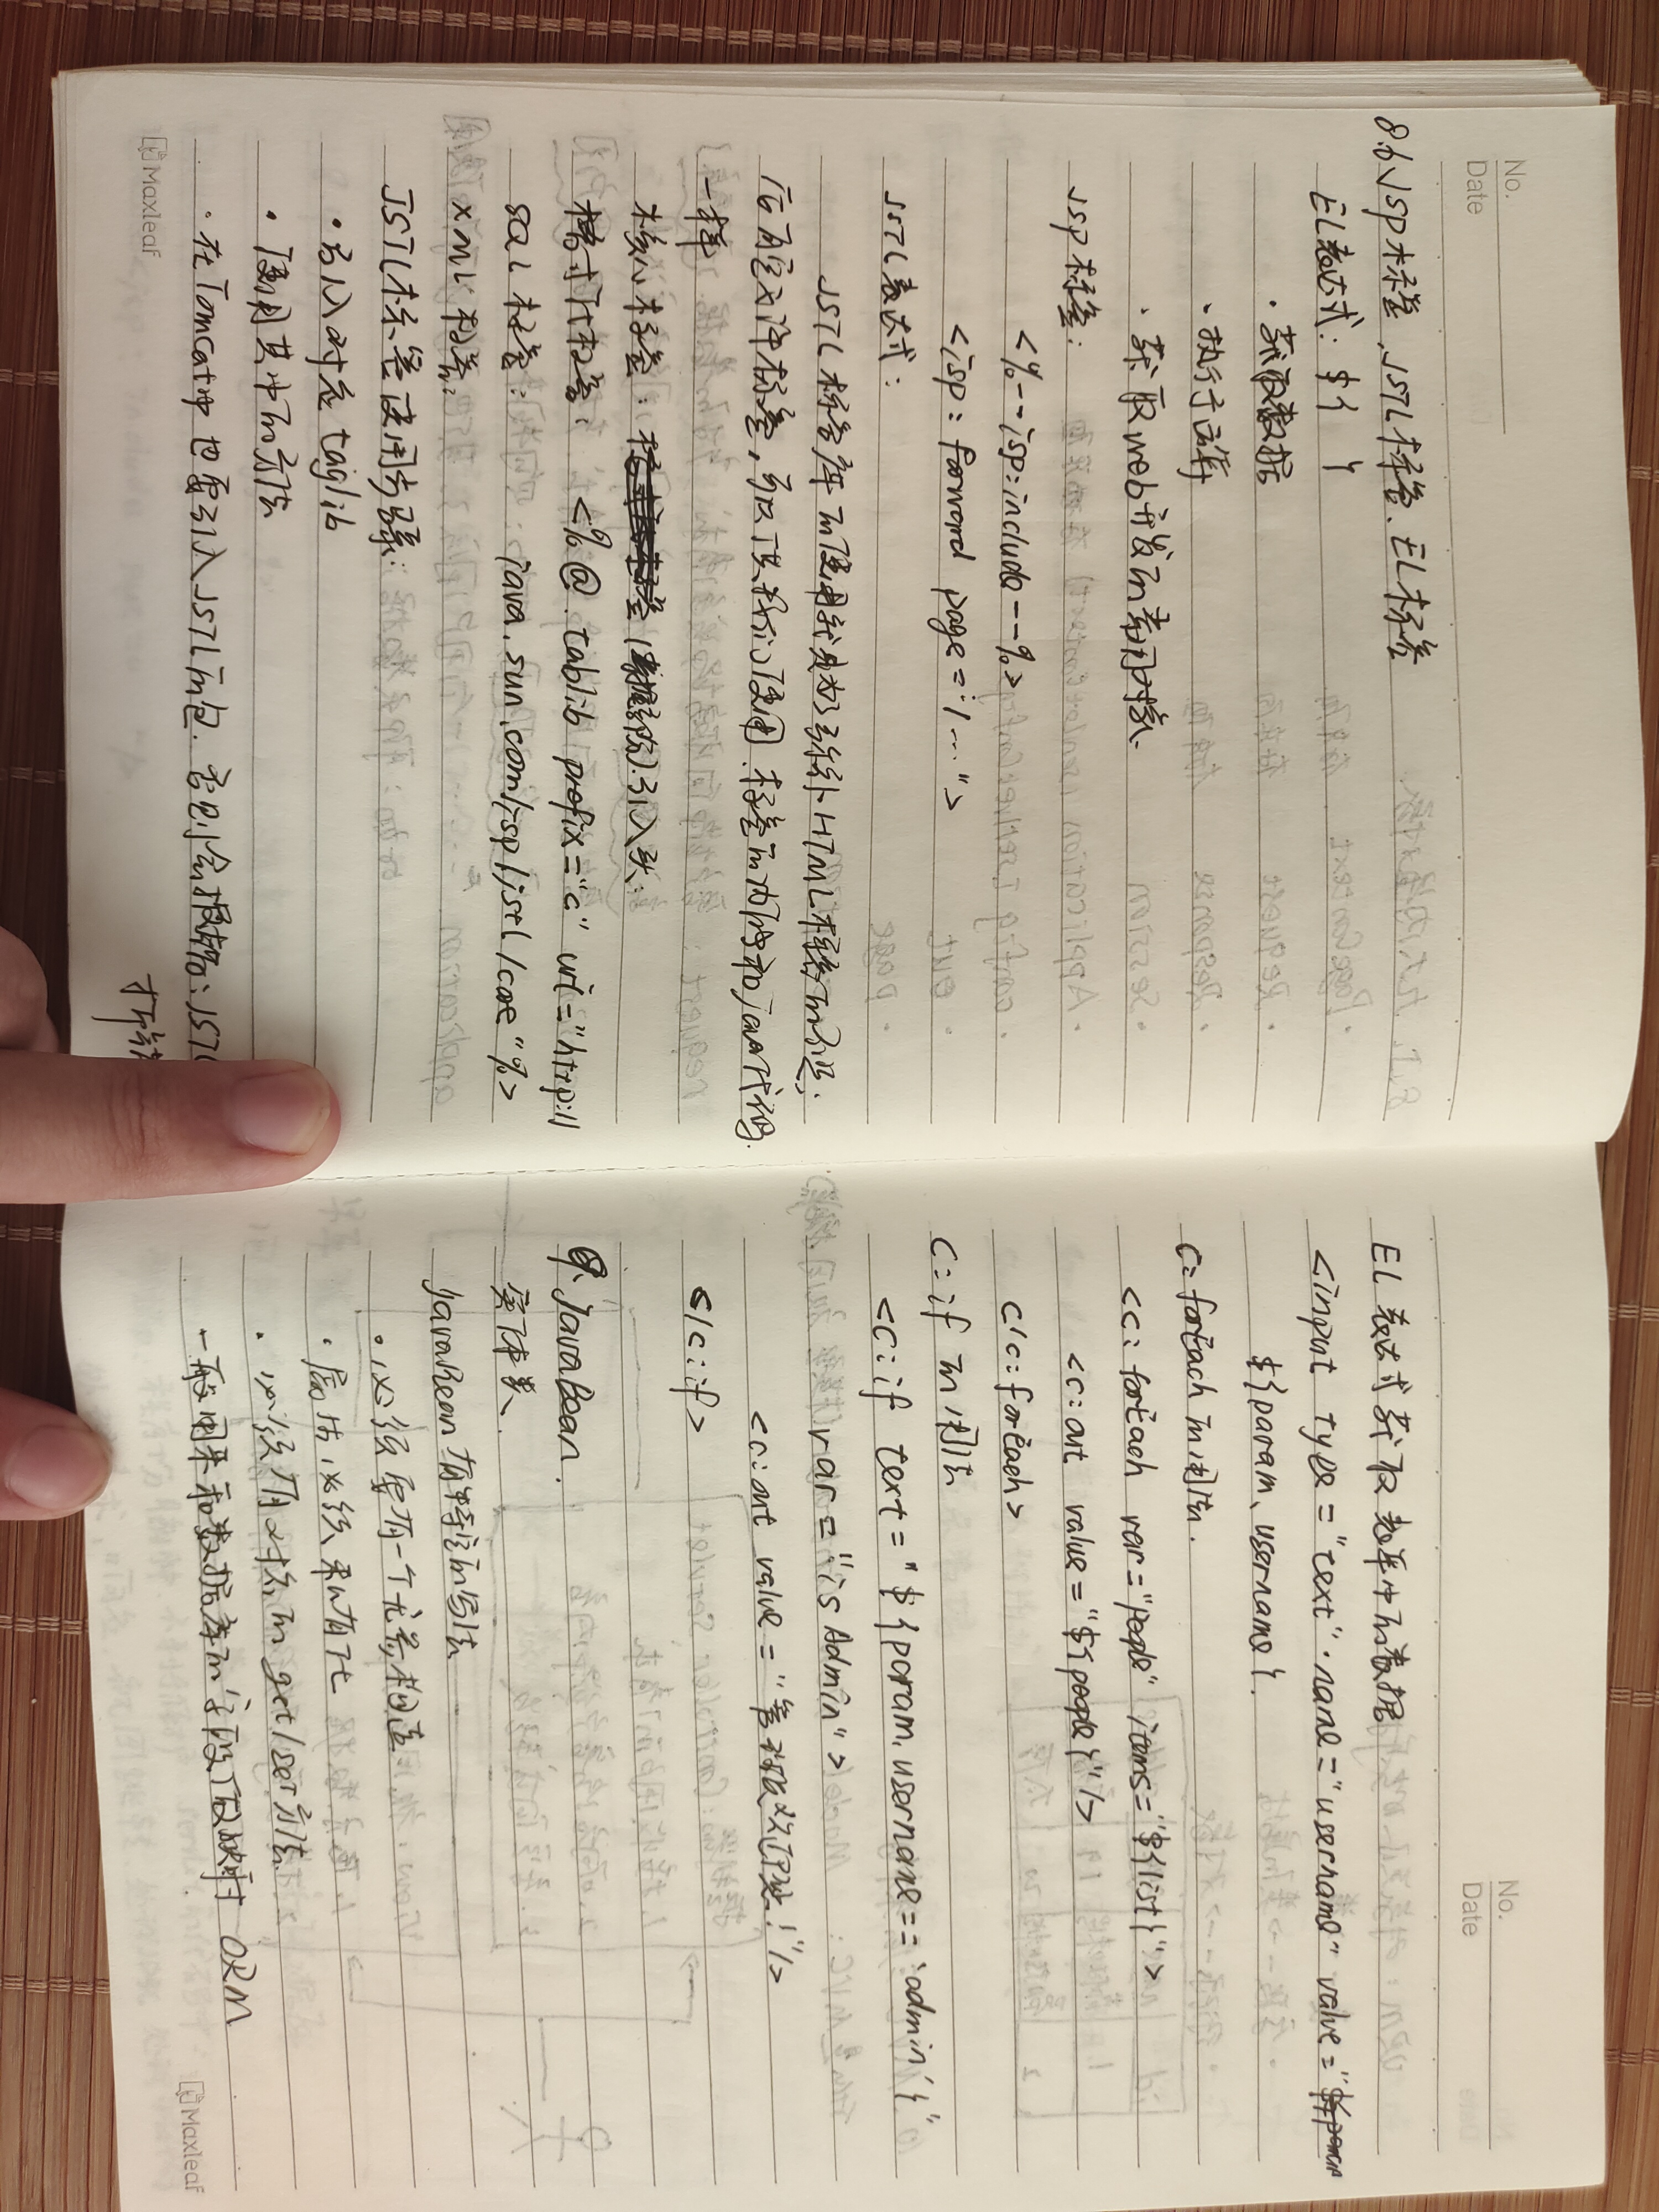 No.
Date
8.6 JSP标签、JSTL标签、EL标签
EL表达式: ${ }
· 获取数据
· 执行运算
· 获取web开发的常用对象.
JSP标签:
<%--jsp:include--%>
<jsp:forward page="/..."> 
JSTL表达式:
JSTL标签库的使用就是为了弥补HTML标签的不足;
它自定义许多标签,可以供我们使用.标签的功能和java代码
一样
核心标签: (掌握部分).引入头:
格式化标签: <%@ tablib prefix="c" uri="http://
SQL标签: java.sun.com/jsp/jstl/core"%>
XML标签:
JSTL标签使用步骤:
· 引入对应 taglib
· 使用其中的方法
· 在Tomcat中也要引入JSTL的包.否则会报错: JSTL
Maxleaf
No.
Date
EL表达式获取表单中的数据
<input type="text" name="username" value="
${param.username}.
C:forEach的用法.
<c:forEach var="people" items="${list}">
<c:out value="${people}"/>
</c:forEach>
C:if的用法
<c:if text="${param.username=='admin'}"
var="isAdmin">
<c:out value="管理员欢迎您!"/>
</c:if>
9. JavaBean.
实体类、
JavaBean有特定的写法
· 必须要有一个无参构造
· 属性必须私有化
· 必须有对应的get/set方法.
一般用来和数据库的字段做映射 ORM
Maxleaf